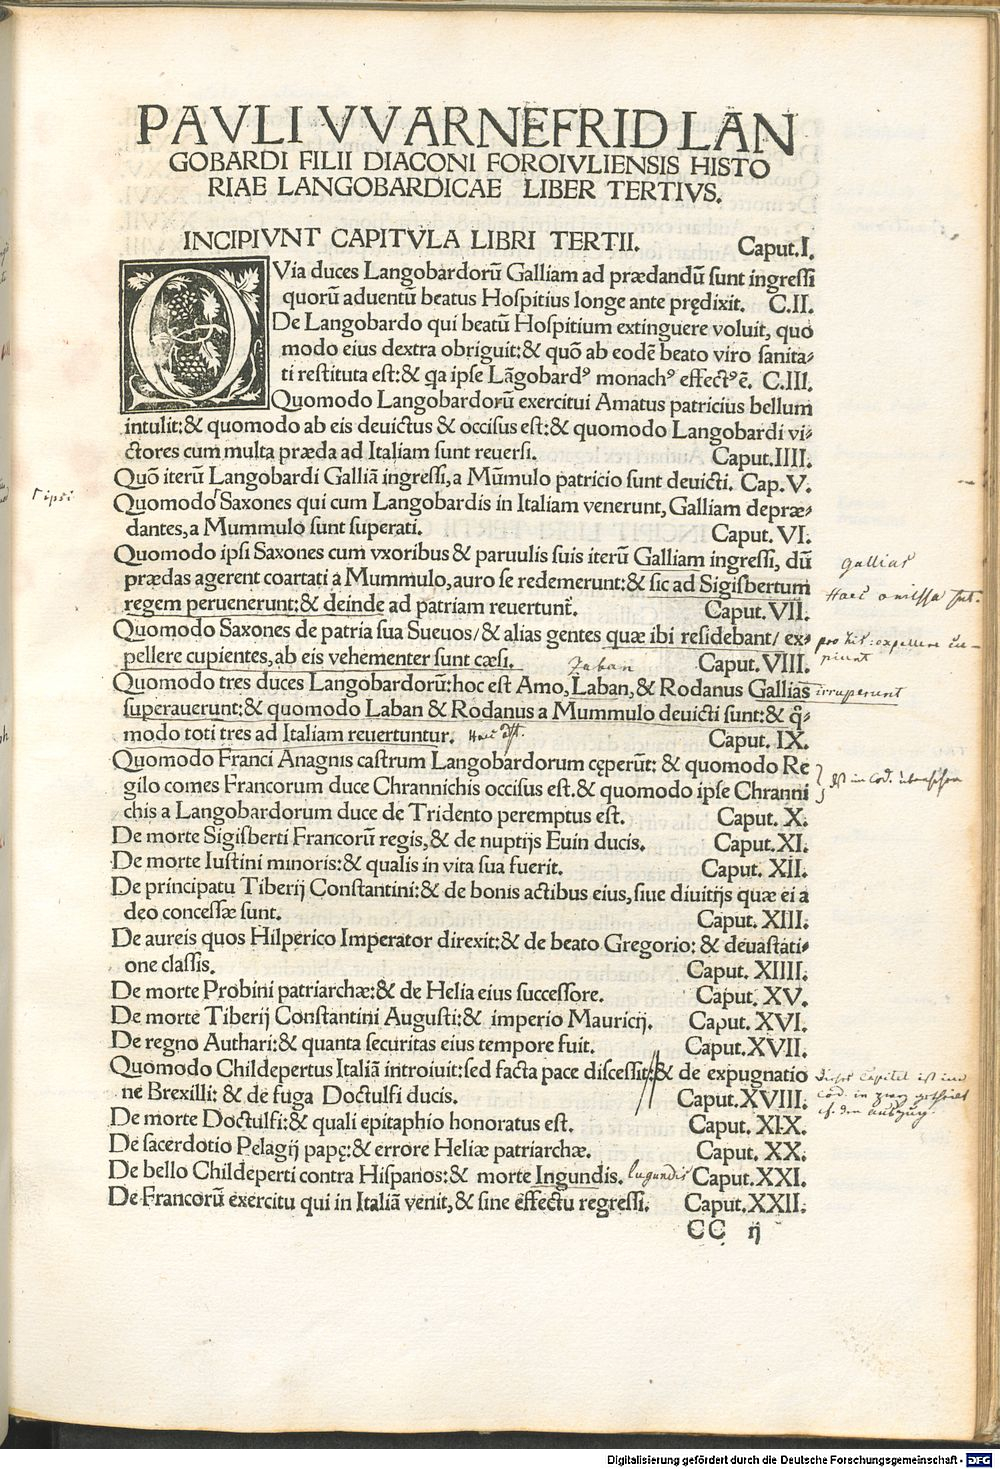 PAVLI VVARNEFRID LAN
GOBARDI FILII DIACONI FOROIVLIENSIS HISTO
RIAE LANGOBARDICAE LIBER TERTIVS.
INCIPIVNT CAPITVLA LIBRI TERTII. Caput.I.
QVia duces Langobardorū Galliam ad prædandū sunt ingressi
quorū aduentū beatus Hospitius longe ante prędixit. C.II.
De Langobardo qui beatū Hospitium extinguere voluit, quo
modo eius dextra obriguit:& quō ab eodē beato viro sanita⸗
ti restituta est:& qa ipse Lāgobardꝰ monachꝰ effectꝰ ē. C.III.
Quomodo Langobardorū exercitui Amatus patricius bellum
intulit:& quomodo ab eis deuictus & occisus est:& quomodo Langobardi vi⸗
ctores cum multa præda ad Italiam sunt reuersi. Caput.IIII.
Quō iterū Langobardi Galliā ingressi, a Mūmulo patricio sunt deuicti. Cap.V.
Quomodo Saxones qui cum Langobardis in Italiam venerunt, Galliam depræ⸗
dantes, a Mummulo sunt superati. Caput. VI.
Γ ipsi
Quomodo ipsi Saxones cum vxoribus & paruulis suis iterū Galliam ingressi, dū
Gallias
prædas agerent coartati a Mummulo, auro se redemerunt:& sic ad Sigisbertum
Haec omissa sut.
regem peruenerunt:& deinde ad patriam reuertunt. Caput. VII.
Quomodo Saxones de patria sua Sueuos/& alias gentes quæ ibi residebant/ ex⸗
pellere cupientes, ab eis vehementer sunt cæsi. Caput. VIII.
expellere
Zaban
Quomodo tres duces Langobardorū:hoc est Amo, Laban, & Rodanus Gallias
irruperunt
superauerunt:& quomodo Laban & Rodanus a Mummulo deuicti sunt:& q̄⸗
modo toti tres ad Italiam reuertuntur. Caput. IX.
Quomodo Franci Anagnis castrum Langobardorum cęperūt: & quomodo Re
gilo comes Francorum duce Chrannichis occisus est.& quomodo ipse Chranni
chis a Langobardorum duce de Tridento peremptus est. Caput. X.
De morte Sigisberti Francorū regis, & de nuptijs Euin ducis. Caput.XI.
De morte Iustini minoris:& qualis in vita sua fuerit. Caput. XII.
De principatu Tiberij Constantini:& de bonis actibus eius, siue diuitijs quæ ei a
deo concessæ sunt. Caput. XIII.
De aureis quos Hilperico Imperator direxit:& de beato Gregorio: & deuastati⸗
one classis. Caput. XIIII.
De morte Probini patriarchæ:& de Helia eius successore. Caput. XV.
De morte Tiberij Constantini Augusti:& imperio Mauricij. Caput. XVI.
De regno Authari:& quanta securitas eius tempore fuit. Caput.XVII.
Quomodo Childepertus Italiā introiuit:sed facta pace discessit:& de expugnatio
ne Brexilli: & de fuga Doctulfi ducis. Caput.XVIII.
Dieses Capitel ist im
Cod. in zwey getheilt
De morte Doctulfi:& quali epitaphio honoratus est. Caput. XIX.
De sacerdotio Pelagij papę:& errore Heliæ patriarchæ. Caput. XX.
De bello Childeperti contra Hispanos:& morte Ingundis. Caput. XXI.
Iugundis
De Francorū exercitu qui in Italiā venit, & sine effectu regressi. Caput.XXII.
CC ij
Digitalisierung gefördert durch die Deutsche Forschungsgemeinschaft - DFG